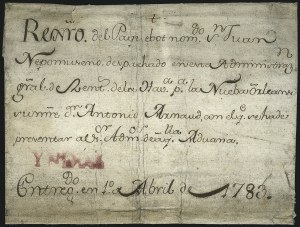 Rexro. del Paquebot nomdo. Sn. Juan
Nepomuseno, despachado en esta Admin.on
gral. de Rent.s de la Hava.a pa. la Nueba Orleans
su mre. dn. Antonio Arnaud, con el qe. se ha de
presentar al Sor. Admor. de aqlla. Aduana.
Entregdo. en 1o. de Abril de 1783.